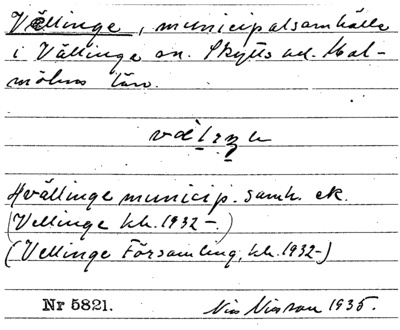 Vellinge, municipalsamhälle
i Vällinge sn. Skytts hd. Mal-
möhus län.
Hvällinge municip. samh. ek.
(Vellinge kb. 1932-.)
(Vellinge Församling, kb. 1932-)
Nr 5821. Nils Nilsson 1935.